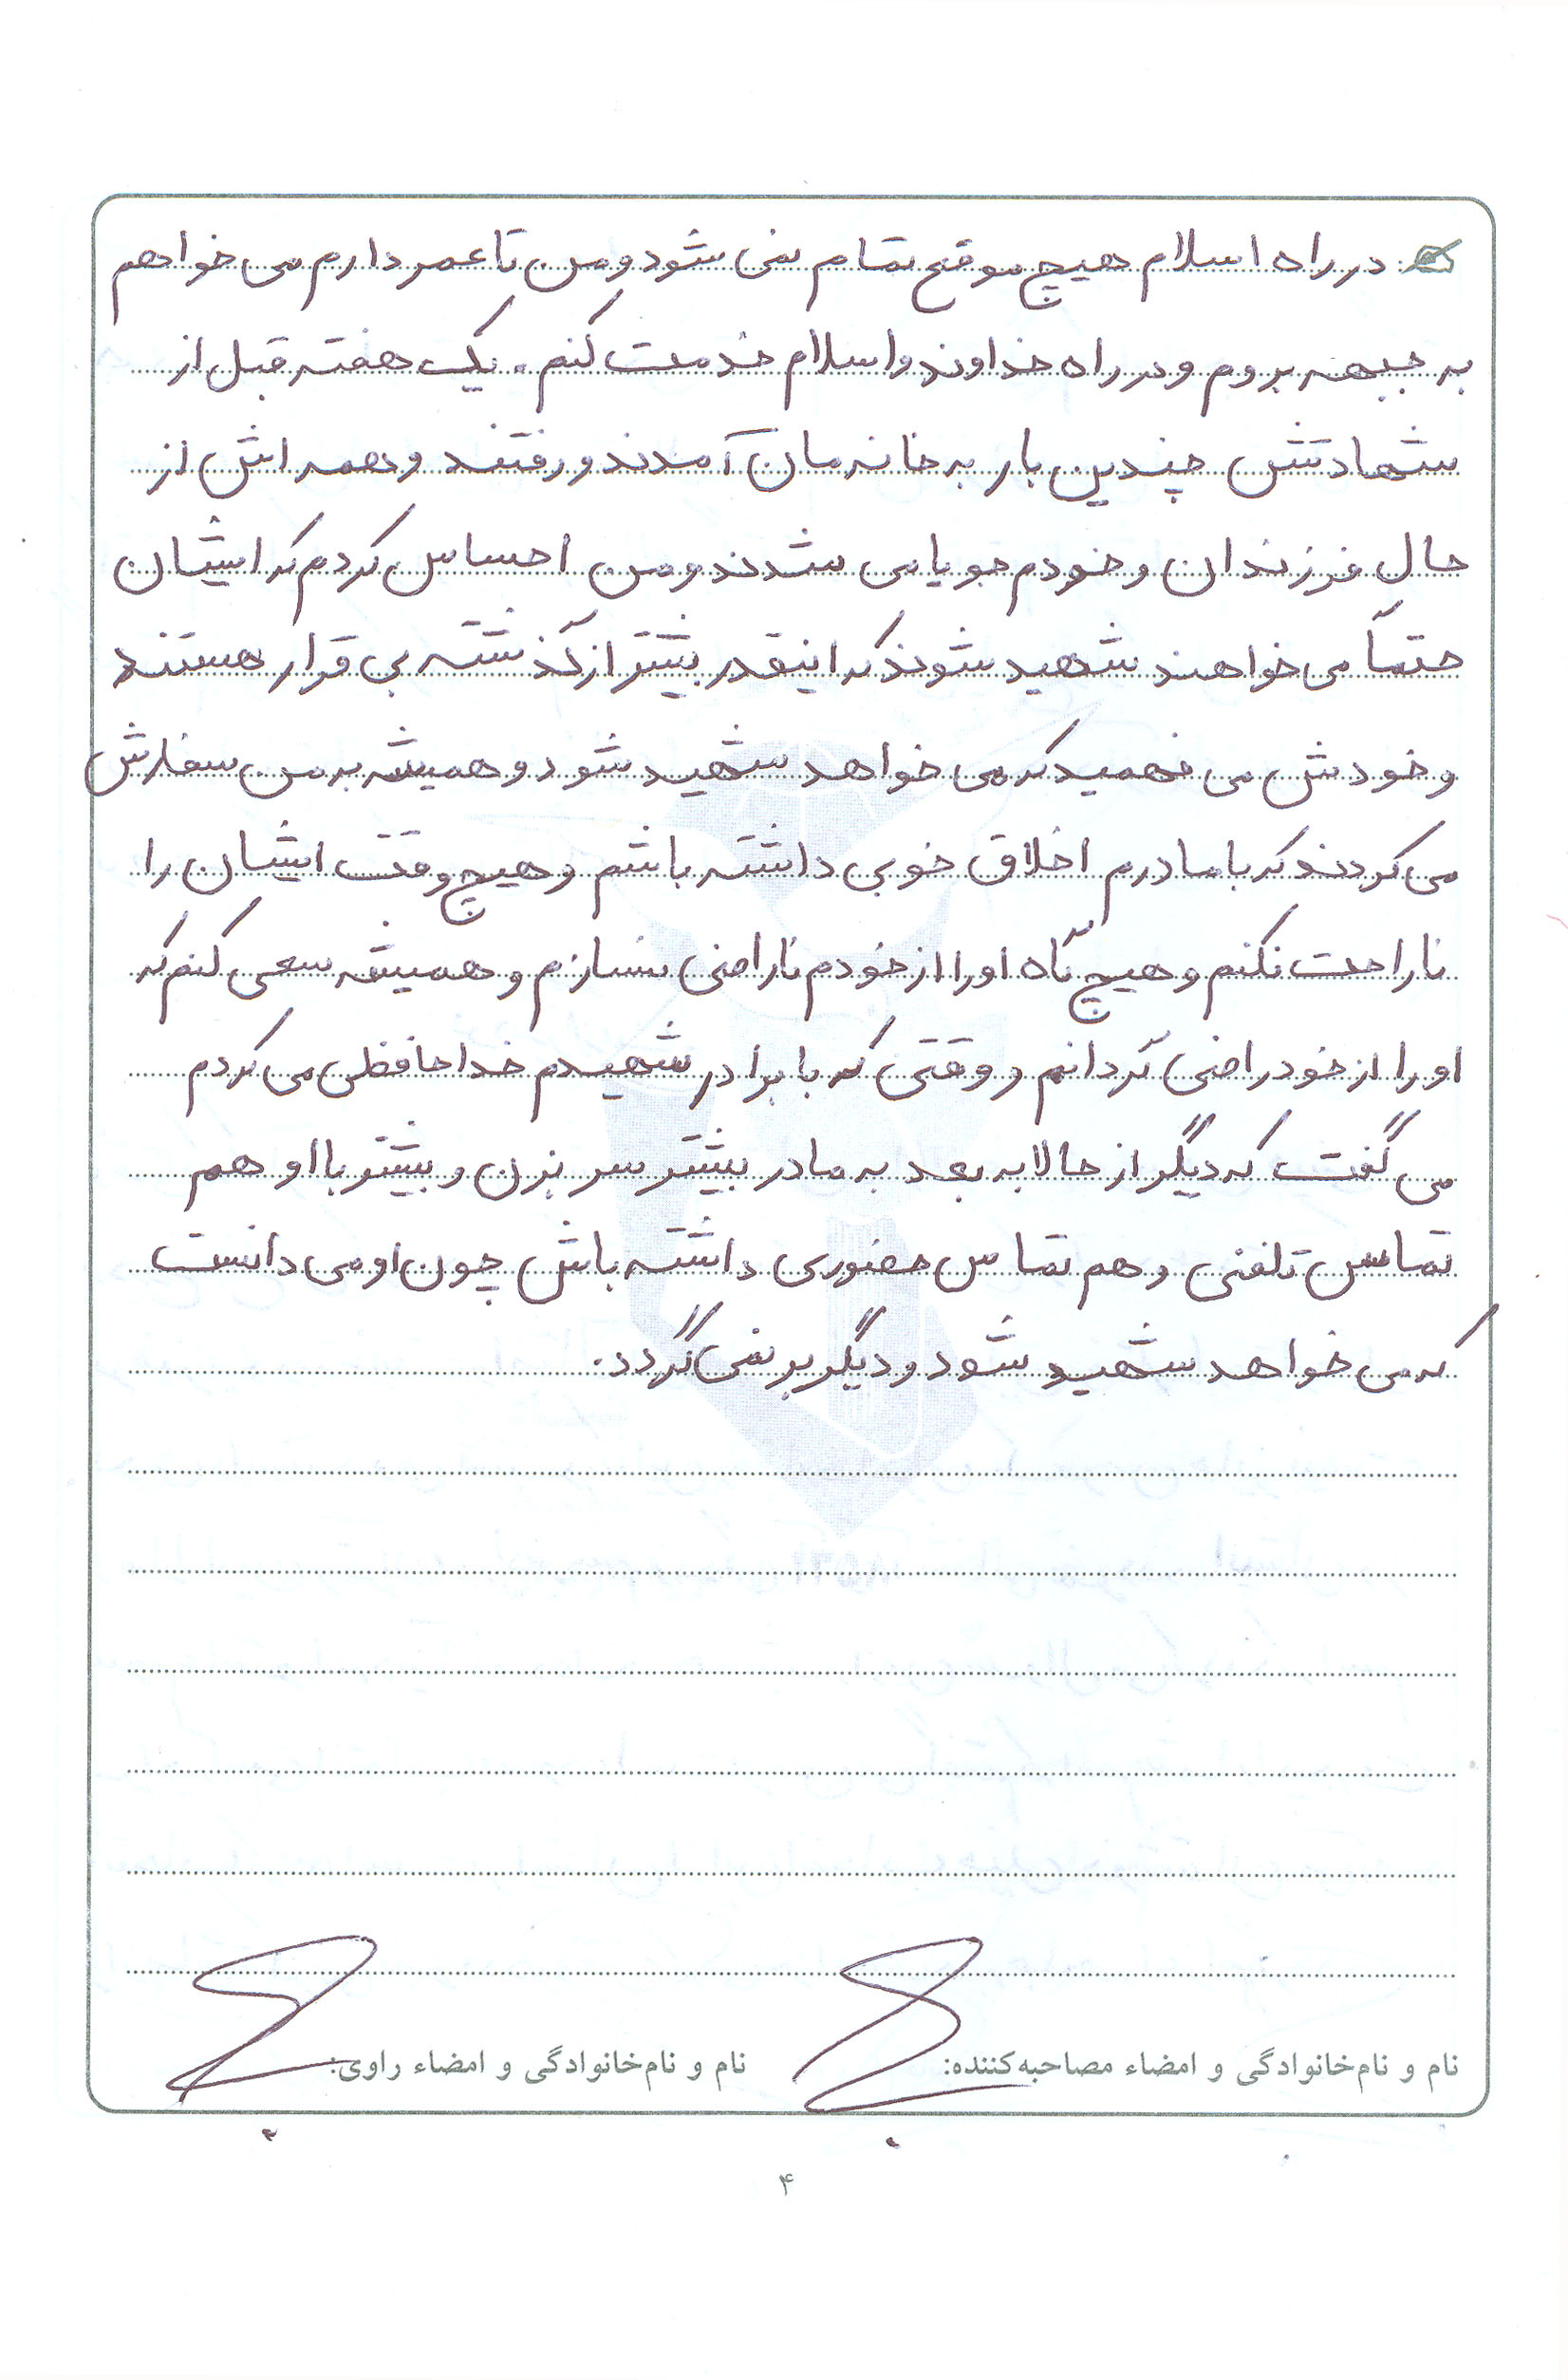 در راه اسلام هیچ موقع تمام نمی شود و من تا عمر دارم می خواهم
به جبهه بروم و در راه خداوند و اسلام خدمت کنم. یک هفته قبل از
شهادتش چندین بار به خانه مان آمدند و رفتند و همه اش از
حال فرزندان و خودم جویا می شدند و من احساس کردم که ایشان
حتماً می خواهند شهید شوند که اینقدر بیشتر از گذشته بی قرار هستند
و خودش می فهمید که می خواهد شهید شود و همیشه به من سفارش
می کردند که با مادرم اخلاق خوبی داشته باشم و هیچ وقت ایشان را
ناراحت نکنم و هیچ گاه او را از خودم ناراضی نسازم و همیشه سعی کنم که
او را از خود راضی گردانم و وقتی که با برادر شهیدم خداحافظی می کردم
می گفت که دیگر از حالا به بعد به مادر بیشتر سر بزن و بیشتر با او هم
تماس تلفنی و هم تماس حضوری داشته باش چون او می دانست
که می خواهد شهید شود و دیگر بر نمی گردد.
نام و نام‌خانوادگی و امضاء مصاحبه‌کننده: نام و نام‌خانوادگی و امضاء راوی:
۴